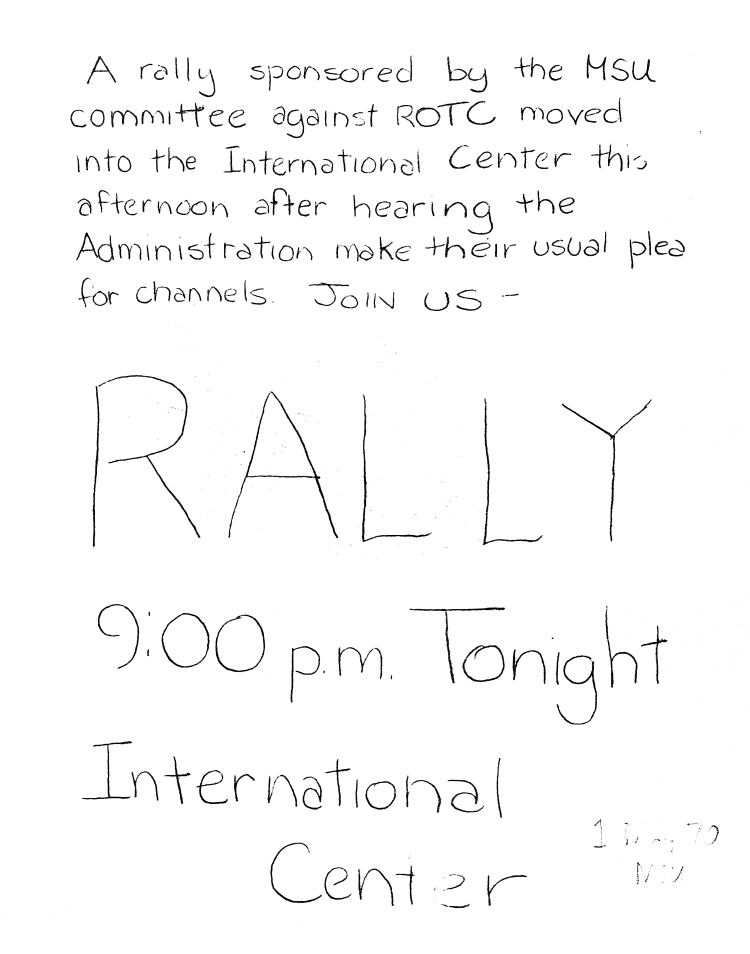 A rally sponsored by the MSU
committee against ROTC moved
into the International Center this
afternoon after hearing the
Administration make their usual plea
for channels. JOIN US -
RALLY
9:00 p.m. Tonight
International
Center
1 May 70
MSU